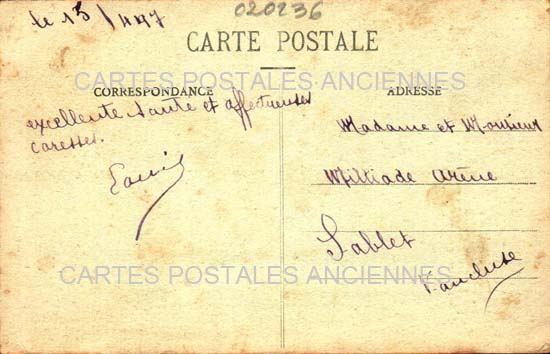 le 15/
020236
CARTE POSTALE
CARTES POSTALES ANCIENNES
CORRESPONDANCE
excellente santé et affectueuses
caresses.
Louis
ADRESSE
Madame et Monsieur
Milliade Arène
Sablet
Vaucluse
CARTES POSTALES ANCIENNES